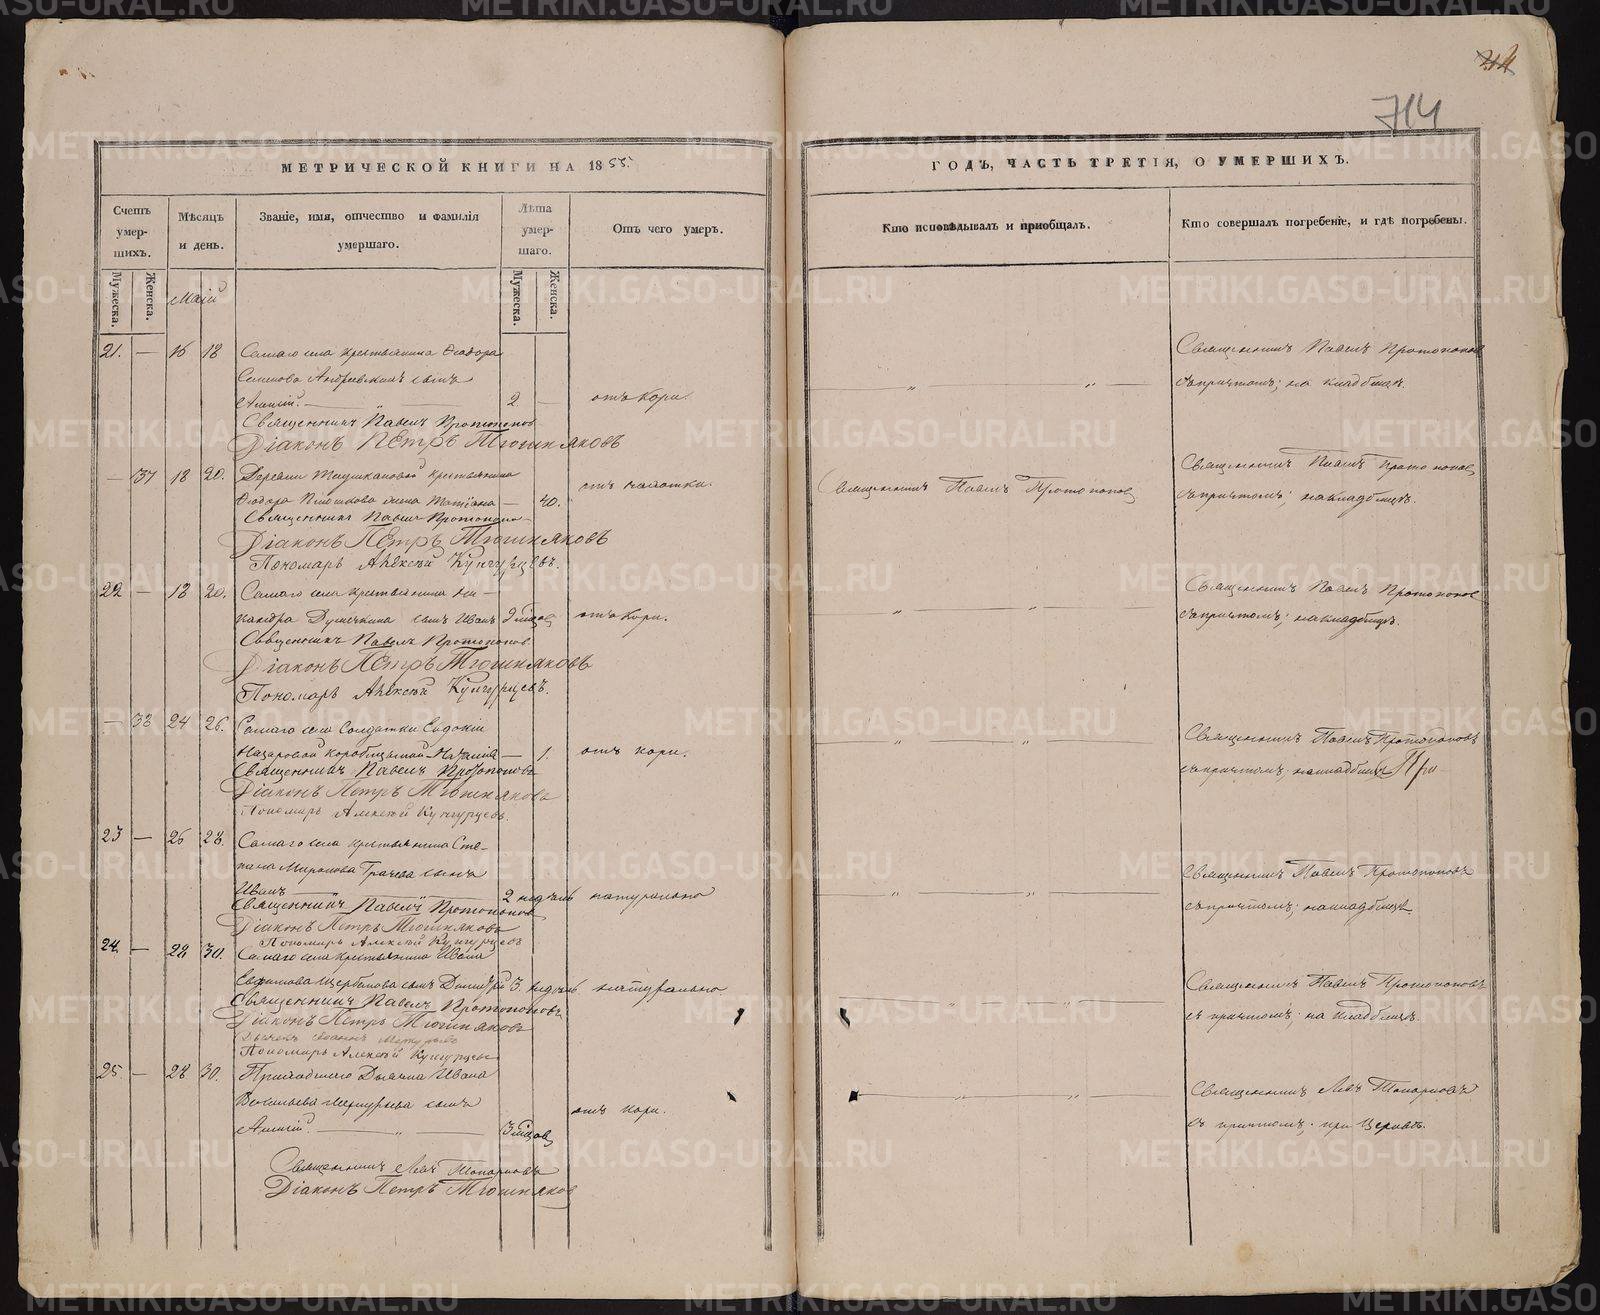 714
МЕТРИЧЕСКОЙ КНИГИ НА 1855.
ГОДЪ, ЧАСТЬ ТРЕТІЯ, О УМЕРШИХЪ.
Счетъ умер-шихъ.
Мѣсяцъ и день.
Званіе, имя, отчество и фамилія умершаго.
Лѣта умер-шаго.
Отъ чего умеръ.
Кто исповѣдывалъ и пріобщалъ.
Кто совершалъ погребеніе, и гдѣ погребены.
Мужеска.
Женска.
Маій
Мужеска.
Женска.
21. — 16 18 Самаго села крестьянина Ѳеодора
Семенова Андреевскихъ сынъ
Алексій. — „ — 2 — отъ кори.
Священникъ Павелъ Протопопов
съ причтомъ; на кладбищѣ.
Священникъ Павелъ Протопопов
Діаконъ Петръ Тюшняковъ
— 37 18 20. Деревни крестьянина
Ѳеодора жена Татіана — 40.
Священникъ Павелъ Протопопов
Священникъ Павелъ Протопопов
съ причтомъ; на кладбищѣ.
Священникъ Павелъ Протопопов
Діаконъ Петръ Тюшняковъ
Пономарь Алексѣй Кунгурцевъ.
22 — 18 20. Самаго села крестьянина Ни-
кандра сынъ Иванъ мѣсяцов отъ кори.
Священникъ Павелъ Протопопов
съ причтомъ; на кладбищѣ.
Священникъ Павелъ Протопопов.
Діаконъ Петръ Тюшняковъ
Пономарь Алексѣй Кунгурцевъ.
— 38 24 26. Самаго села Солдатки Евдокіи
Назаровой Наталія — 1. отъ кори.
Священникъ Павелъ Протопоповъ
съ причтомъ, на кладбищѣ При
Священникъ Павелъ Протопоповъ
Діаконъ Петръ Тюшняковъ
Пономарь Алексѣй Кунгурцевъ.
23 — 26 28. Самаго села крестьянина Сте-
пана Миронова Грачева сынъ
Иванъ — „ 2 недѣль натурально
Священникъ Павелъ Протопоповъ
съ причтомъ; на кладбищѣ
Священникъ Павелъ Протопоповъ
Діаконъ Петръ Тюшняковъ
Пономарь Алексѣй Кунгурцевъ
24. — 28 30. Самаго села крестьянина Ивана
Евфимова Щербакова сынъ Димитрій 3. недѣль натурально
Священникъ Павелъ Протопоповъ
съ причтомъ; на кладбищѣ.
Священникъ Павелъ Протопоповъ
Діаконъ Петръ Тюшняковъ
Дьячекъ Іоаннъ
Пономарь Алексѣй Кунгурцевъ
25. — 28 30. Дьячка Ивана
Васильева сынъ отъ кори.
Алексій. — „ — 3 мѣсяцов
Священникъ Левъ Топорковъ
съ причтомъ; при Церквѣ.
Священникъ Левъ Топорковъ
Діаконъ Петръ Тюшняков
METRIKI.GASO-URAL.RU